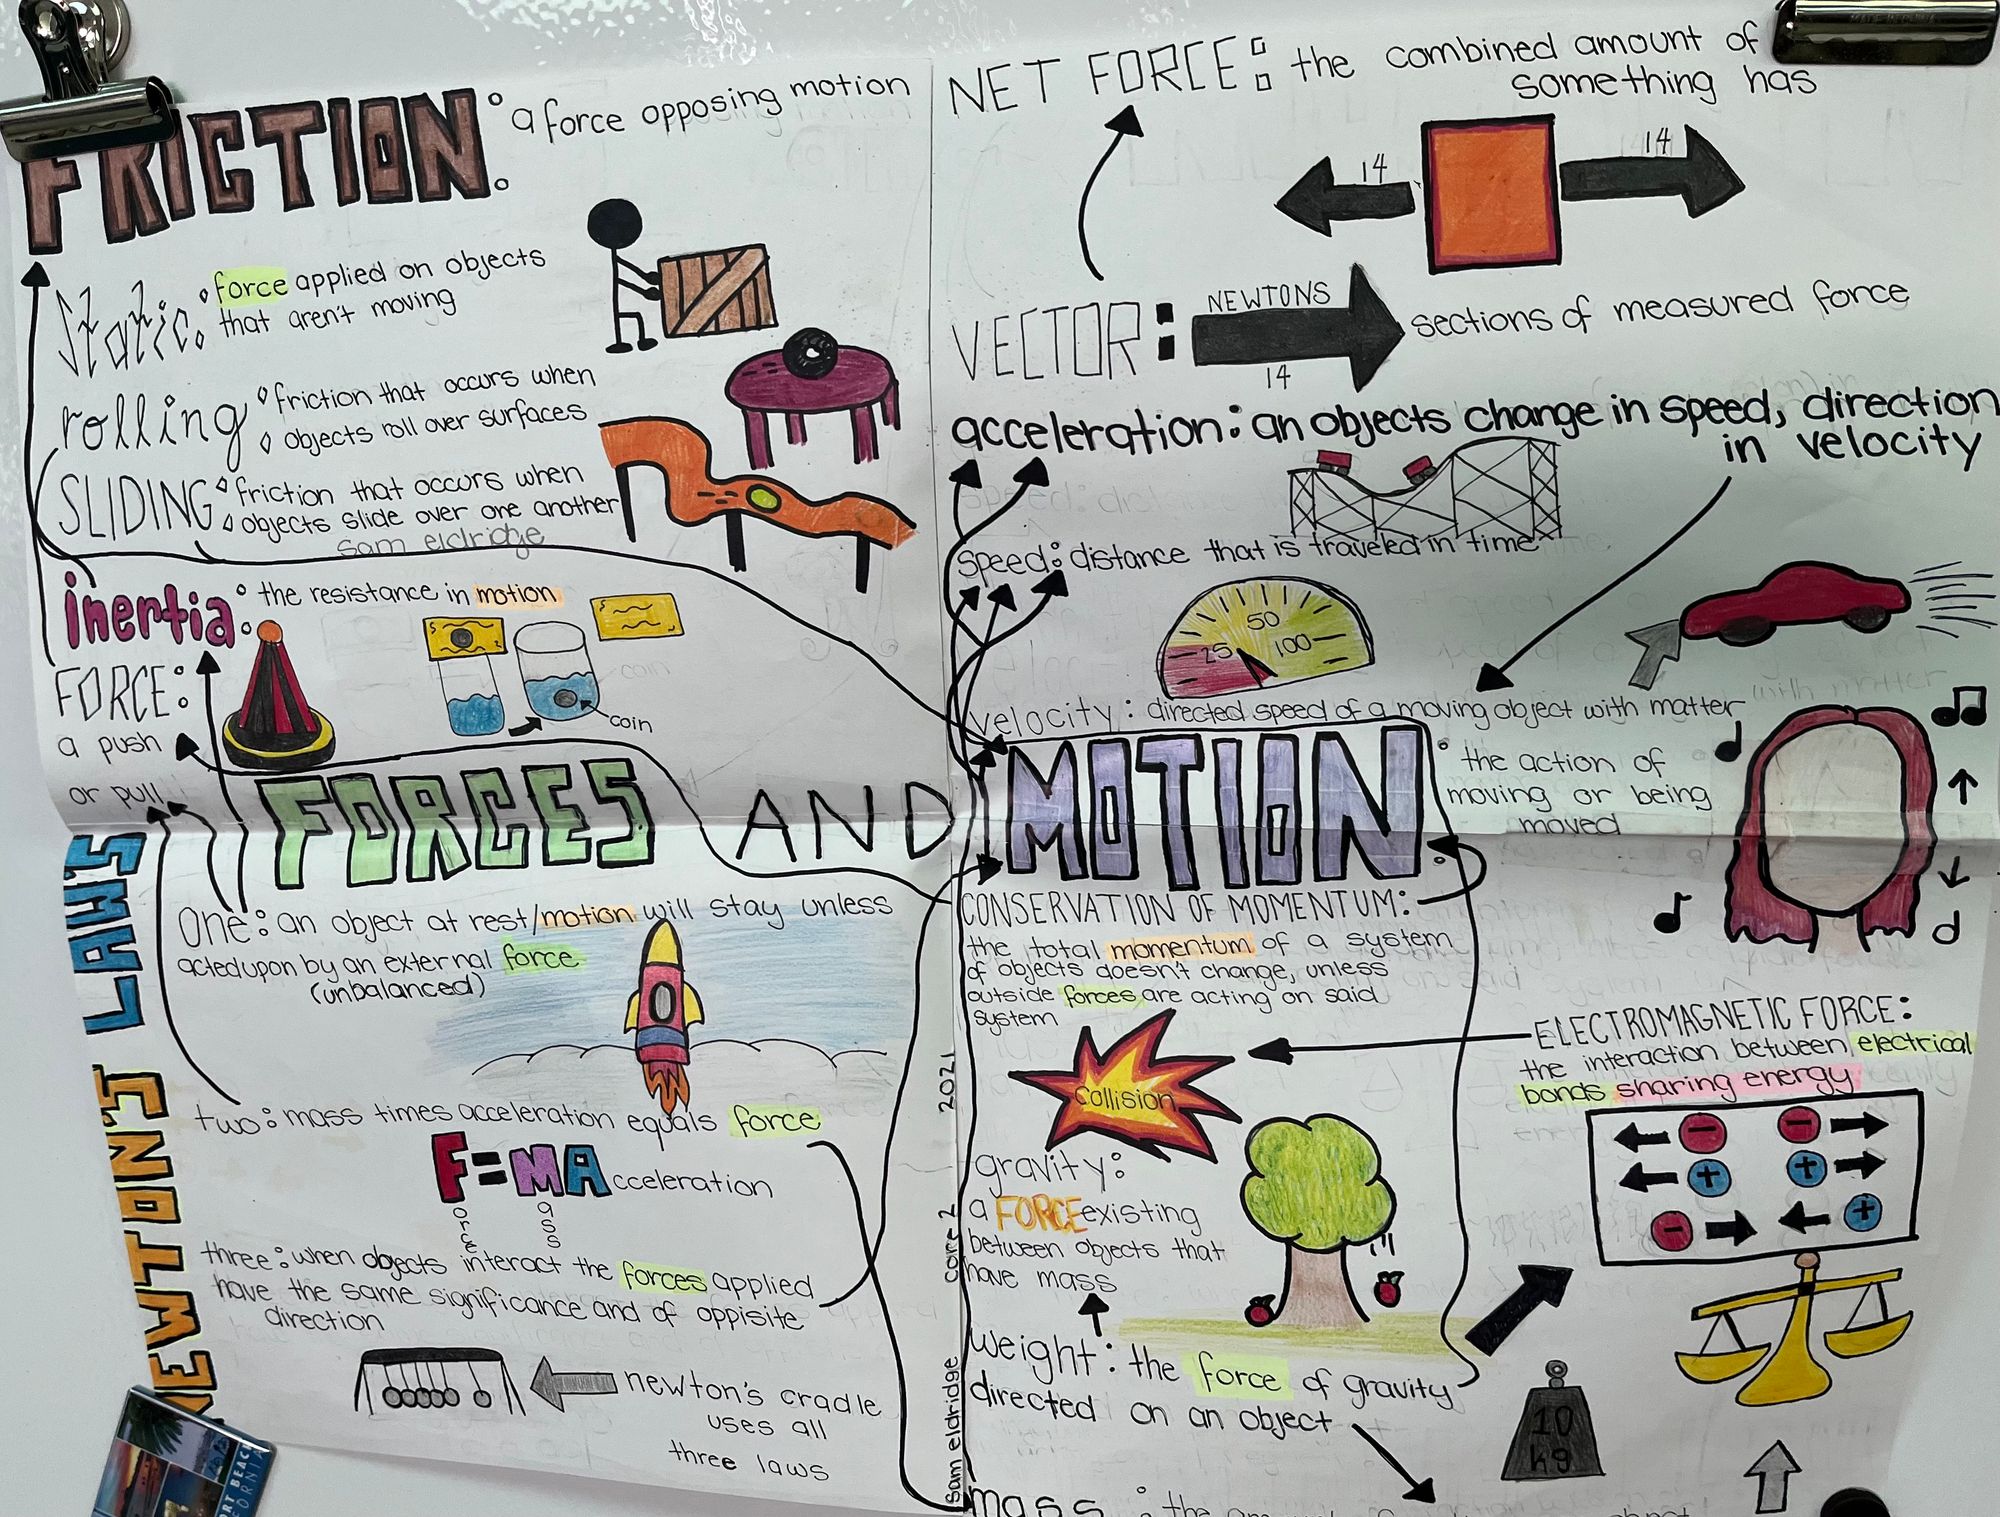 FRICTION: a force opposing motion
Static: force applied on objects
that aren't moving
rolling: friction that occurs when
objects roll over surfaces
SLIDING: friction that occurs when
objects slide over one another
sam eldridge
inertia: the resistance in motion
coin
coin
FORCE:
a push
or pull
NET FORCE: the combined amount of
something has
14
14
VECTOR: NEWTONS sections of measured force
14
acceleration: an objects change in speed, direction
in velocity
speed: distance that is traveled in time
25 50 100
velocity: directed speed of a moving object with matter
FORCES AND MOTION: the action of
moving or being
moved
NEWTON'S LAWS
One: an object at rest/motion will stay unless
acted upon by an external force
(unbalanced)
two: mass times acceleration equals force
F=MAcceleration
orce
ass
three: when objects interact the forces applied
have the same significance and of oppisite
direction
newton's cradle
uses all
three laws
sam eldridge core 2 2021
CONSERVATION OF MOMENTUM:
the total momentum of a system
of objects doesn't change, unless
outside forces are acting on said
system
Collision
ELECTROMAGNETIC FORCE:
the interaction between electrical
bonds sharing energy
− −
+ +
− +
gravity:
a FORCE existing
between objects that
have mass
weight: the force of gravity
directed on an object
10
kg
mass: the